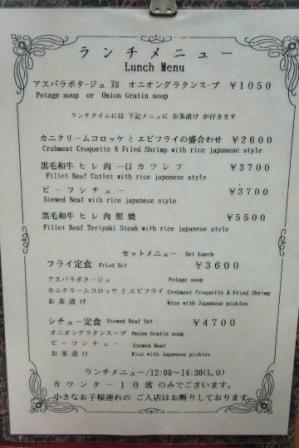 ランチメニュー
Lunch Menu
アスパラポタージュ 又は オニオングラタンスープ ￥1050
Potage soup or Onion Gratin soup
ランチタイムには 下記メニューに お茶漬け が付きます
カニクリームコロッケ と エビフライの盛合わせ ￥2600
Crabmeat Croquette & Fried Shrimp with rice japanese style
黒毛和牛 ヒレ 肉 一口 カツレツ ￥3700
Fillet Beaf Cutlet with rice japanese style
ビーフシチュー ￥3700
Stewed Beaf with rice japanese style
黒毛和牛 ヒレ 肉 照焼 ￥5500
Fillet Beaf Teriyaki Steak with rice japanese style
セットメニュー Set Lunch
フライ定食 Fried Set ￥3600
アスパラポタージュ Potage soup
カニクリームコロッケ と エビフライ Crabmeat Croquette & Fried Shrimp
お茶漬け Rice with Japanese pickles
シチュー定食 Stewed Beaf Set ￥4700
オニオングラタンスープ Onion Gratin soup
ビーフシチュー Stewed Beaf
お茶漬け Rice with Japanese pickles
ランチメニュー/12:00～14:30(L.O)
カウンター１０席 のみでございます。
小さなお子様連れの ご入店はお断りしております。